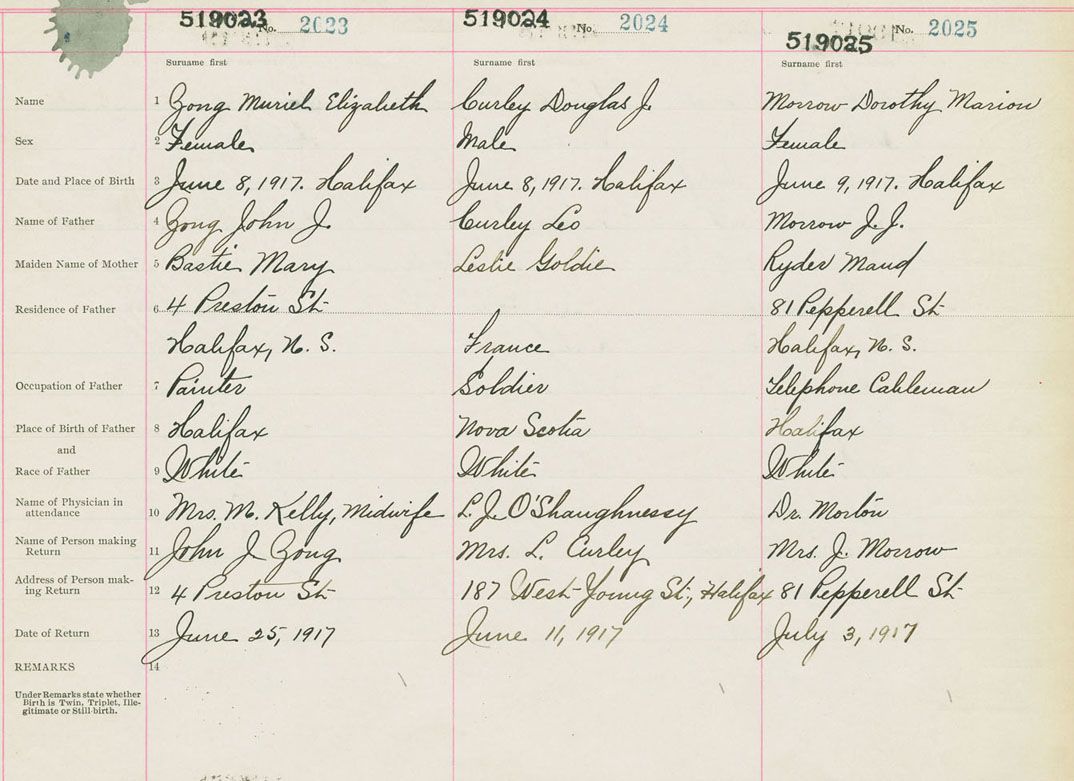 519023 No. 2023 519024 No. 2024 519025 No. 2025
Surname first Surname first Surname first
Name 1 Zong Muriel Elizabeth Curley Douglas J. Morrow Dorothy Marion
Sex 2 Female Male Female
Date and Place of Birth 3 June 8, 1917. Halifax June 8, 1917. Halifax June 9, 1917. Halifax
Name of Father 4 Zong John J. Curley Leo Morrow J. J.
Maiden Name of Mother 5 Bastie Mary Leslie Goldie Ryder Maud
Residence of Father 6 4 Preston St 81 Pepperell St
Halifax, N. S. France Halifax, N. S.
Occupation of Father 7 Painter Soldier Telephone Cableman
Place of Birth of Father 8 Halifax Nova Scotia Halifax
and
Race of Father 9 White White White
Name of Physician in
attendance 10 Mrs. M. Kelly, Midwife L. J. O'Shaughnessy Dr. Morton
Name of Person making
Return 11 John J Zong Mrs. L. Curley Mrs. J. Morrow
Address of Person mak-
ing Return 12 4 Preston St 187 West Young St., Halifax 81 Pepperell St
Date of Return 13 June 25, 1917 June 11, 1917 July 3, 1917
REMARKS 14
Under Remarks state whether
Birth is Twin, Triplet, Ille-
gitimate or Still-birth.